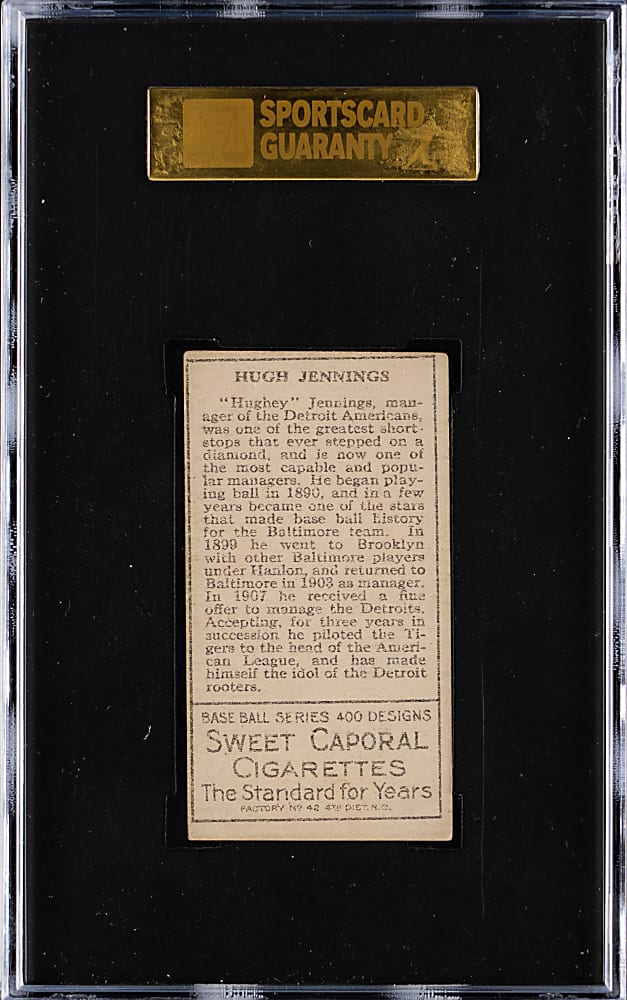 SPORTSCARD
GUARANTY
HUGH JENNINGS
"Hughey" Jennings, man-
ager of the Detroit Americans,
was one of the greatest short-
stops that ever stepped on a
diamond, and is now one of
the most capable and popu-
lar managers. He began play-
ing ball in 1890, and in a few
years became one of the stars
that made base ball history
for the Baltimore team. In
1899 he went to Brooklyn
with other Baltimore players
under Hanlon, and returned to
Baltimore in 1903 as manager.
In 1907 he received a fine
offer to manage the Detroits.
Accepting, for three years in
succession he piloted the Ti-
gers to the head of the Ameri-
can League, and has made
himself the idol of the Detroit
rooters.
BASE BALL SERIES 400 DESIGNS
SWEET CAPORAL
CIGARETTES
The Standard for Years
FACTORY Nº 42 4TH DIST. N.C.